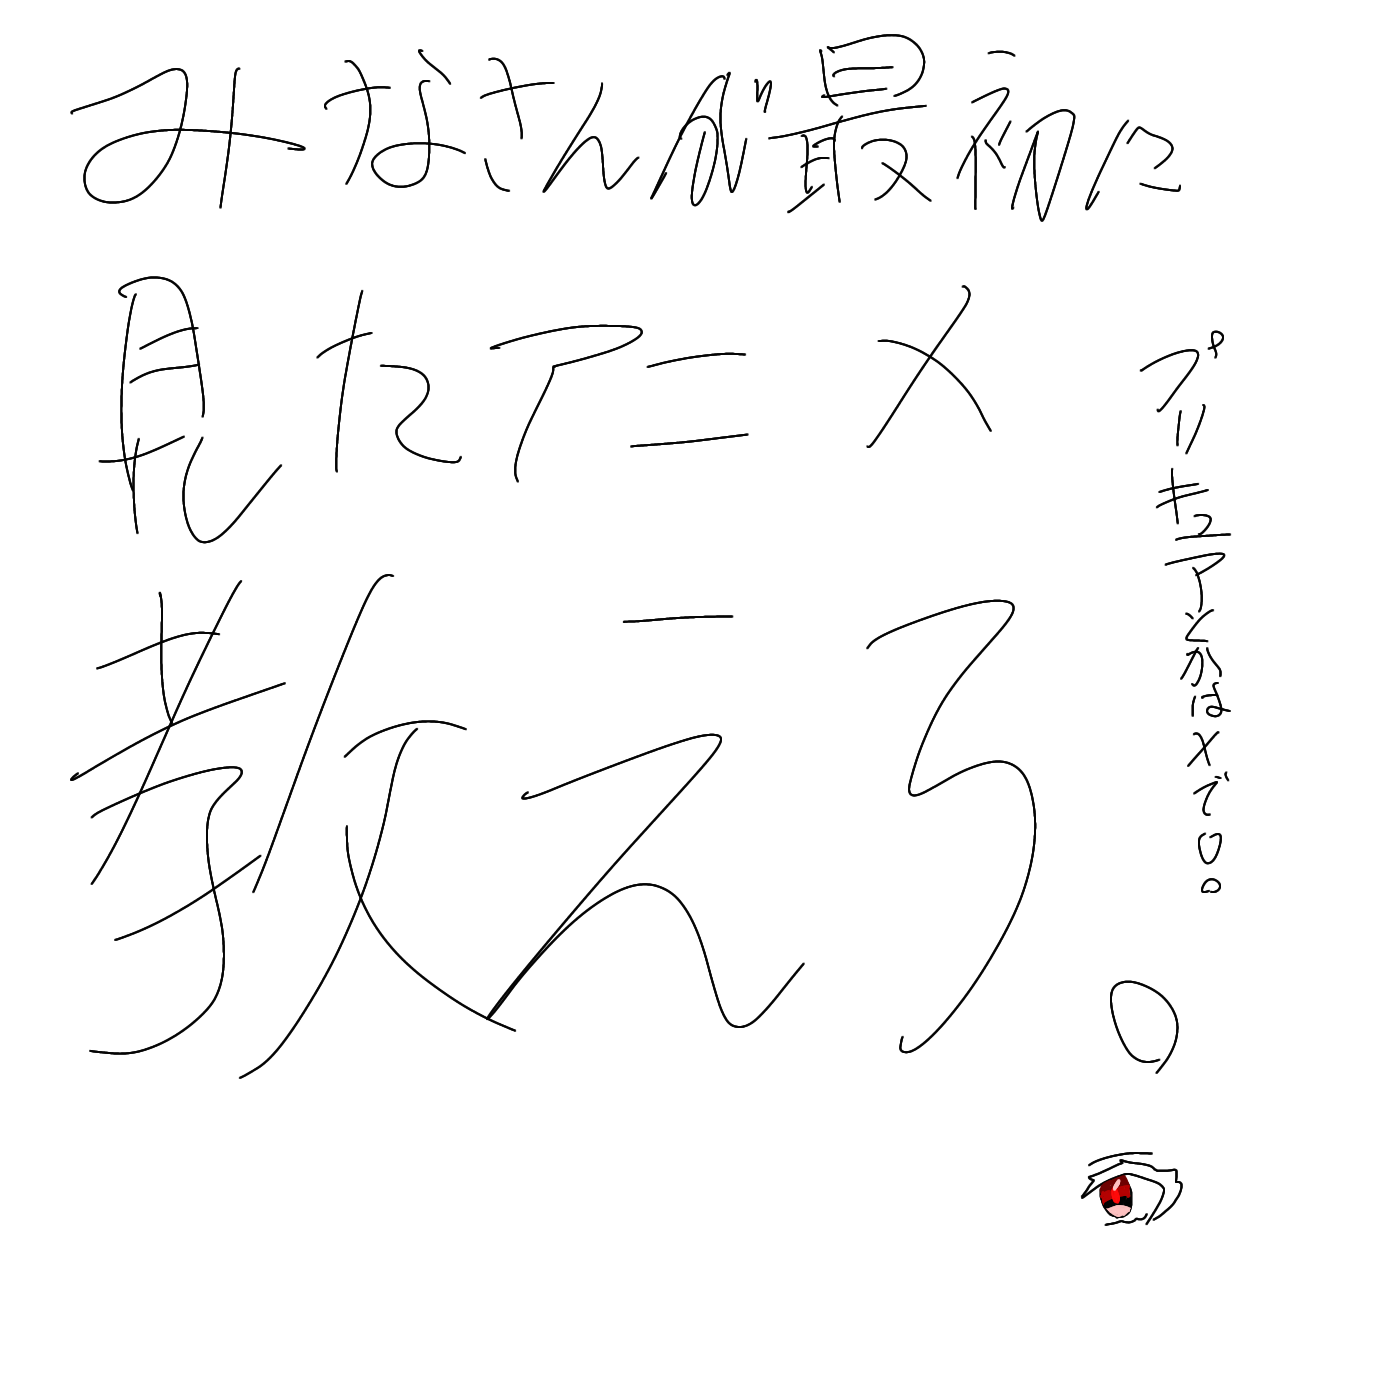 みなさんが最初に
見たアニメ
教えろ。
プリキュアとかは×で〇。